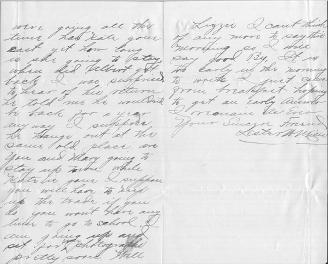 were going all the
time has Kate gone
east yet how long
is she going to stay
when did get
back I was surprised
to hear of his return
he told me he wouldn't
be back for a year
anyway I suppose
the things out at the
same old place are
you and Mary going to
stay up town while
Kate is gone I suppose
you will have to keep
up the trade if you
do you wont have any
time to go to school I
am going up and
sit for photographs
pretty soon Will
Lizzie I can't think
of any more to say this
morning so I will
say good by. It is
so early in the morning
to write I came
from breakfast hoping
to get an early answer
I remain as Ever
Your Friend
Lester